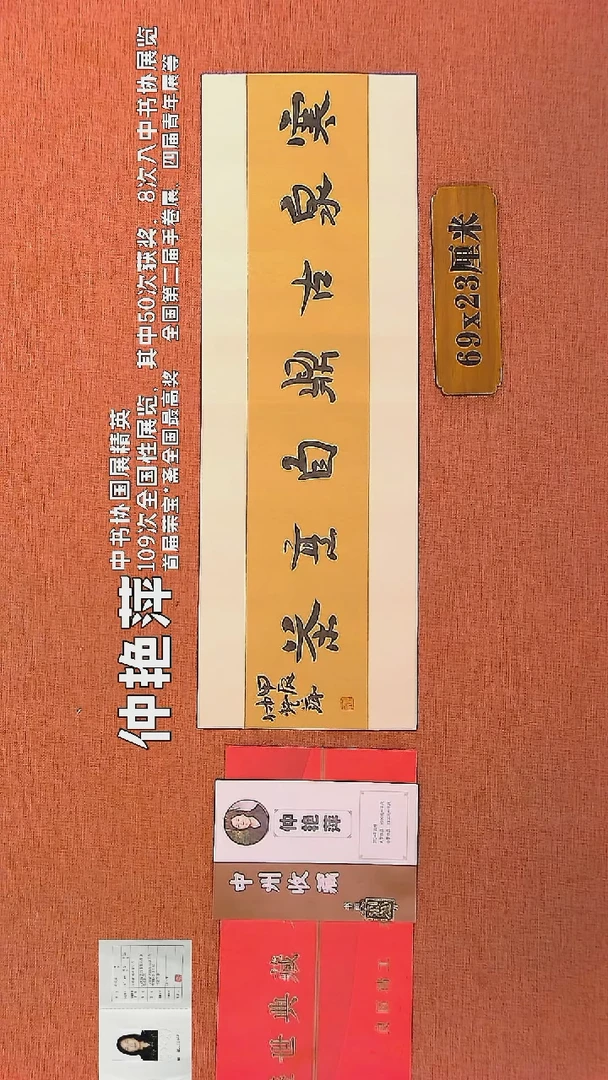 仲艳萍
中书协国展精英
109次全国性展览，其中50次获奖，8次入中书协展览
首届荣宝·斋全国最高奖 全国第二届手卷展、四届青年展等
寒泉古鼎自煮茶
甲辰
仲艳萍
69x23厘米
仲艳萍
中州收藏
世典藏